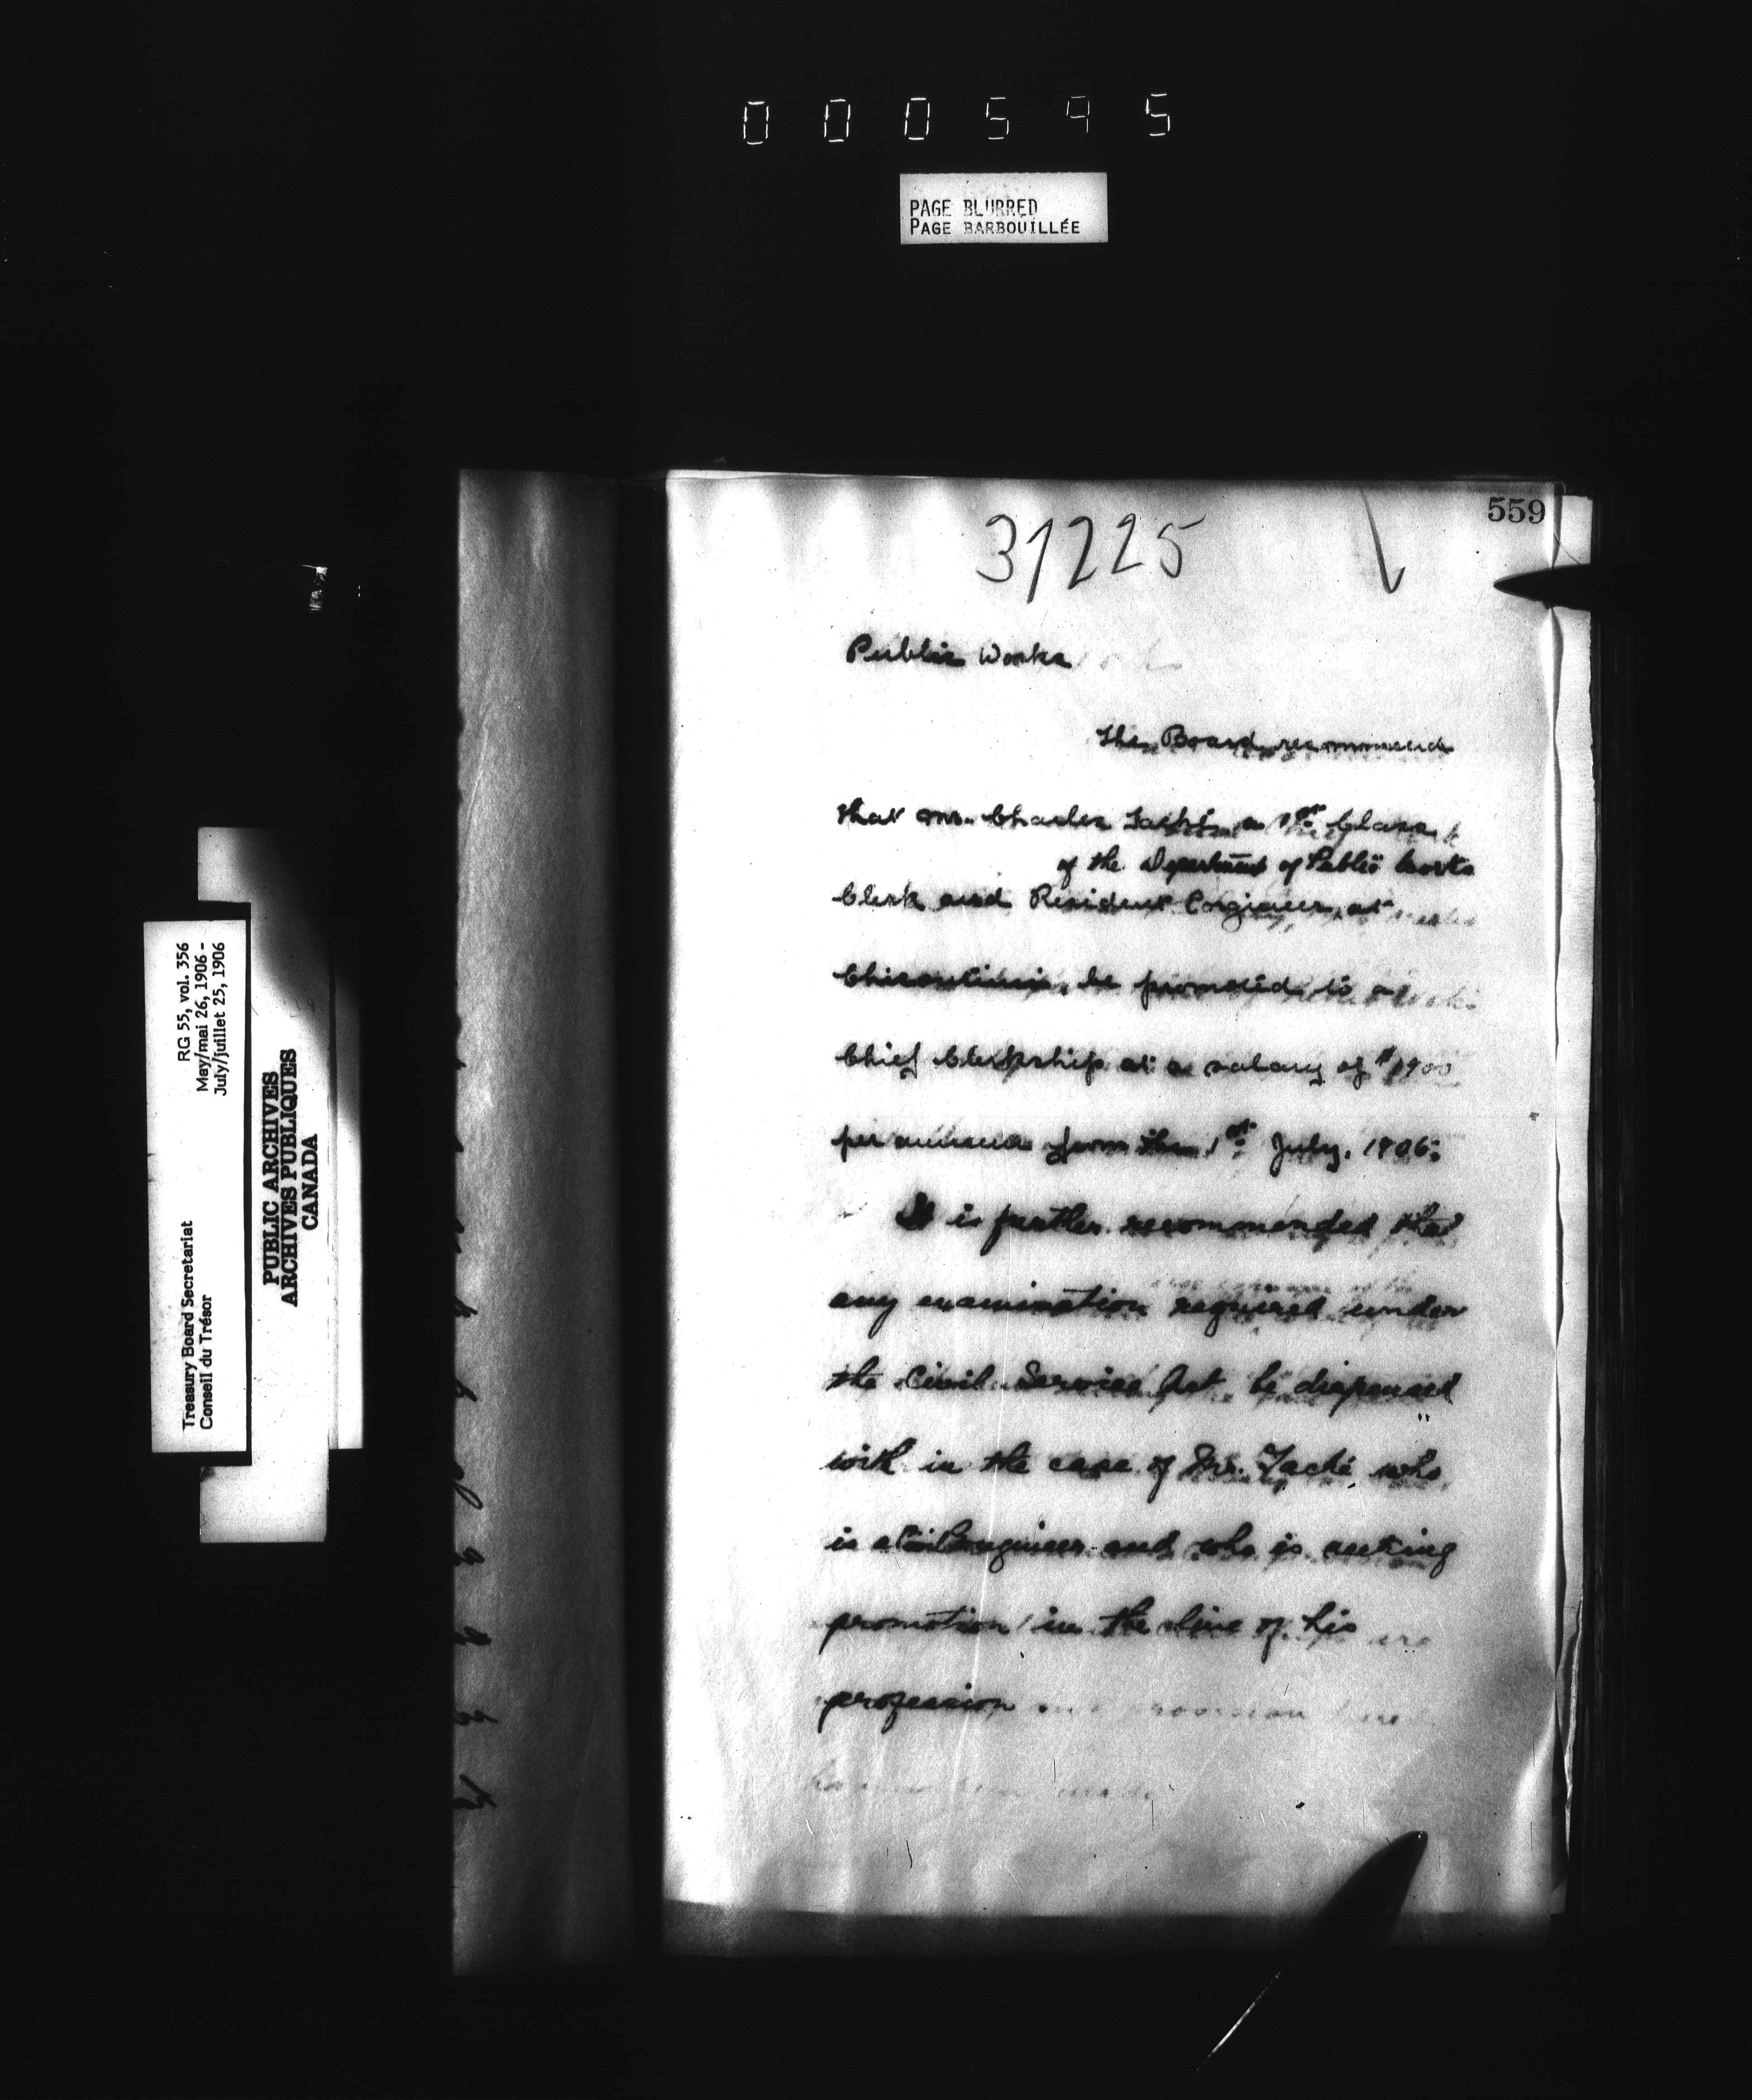 000595
PAGE BLURRED
PAGE BARBOUILLÉE
559
31225
Public Works
The Board recommend
that Mr. Charles Taché, a 1st Class
of the Department of Public Works
Clerk and Resident Engineer, at
Chicoutimi, be promoted to a
Chief Clerkship at a salary of $1900
per annum from the 1st July, 1906.
It is further recommended that
any examination required under
the Civil Service Act be dispensed
with in the case of Mr. Taché who
is a Civil Engineer and who is
promotion in the line of his
profession
RG 55, vol. 356
May/mai 26, 1906 -
July/juillet 25, 1906
Treasury Board Secretariat
Conseil du Trésor
PUBLIC ARCHIVES
ARCHIVES PUBLIQUES
CANADA